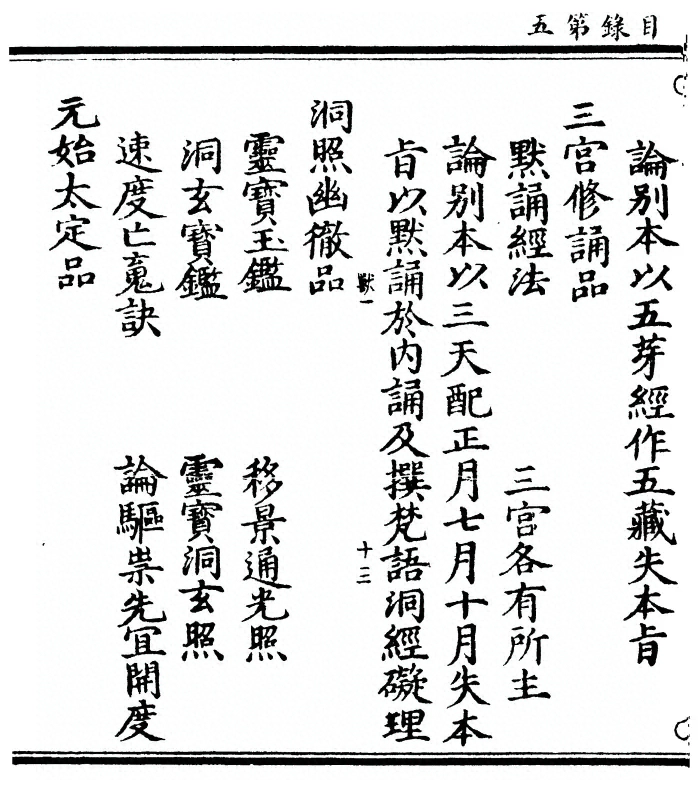 目錄第五
論别本以五芽經作五藏失本㫖
三宫修誦品
默誦經法　三宫各有所主
論别本以三天配正月七月十月失本
㫖以默誦於内誦及撰梵語洞經礙理
獸一　十三
洞照幽徹品
靈寳玉鑑　移景通光照
洞玄寳鑑　靈寳洞玄照
速度亡魂訣　論驅祟先宜開度
元始太定品